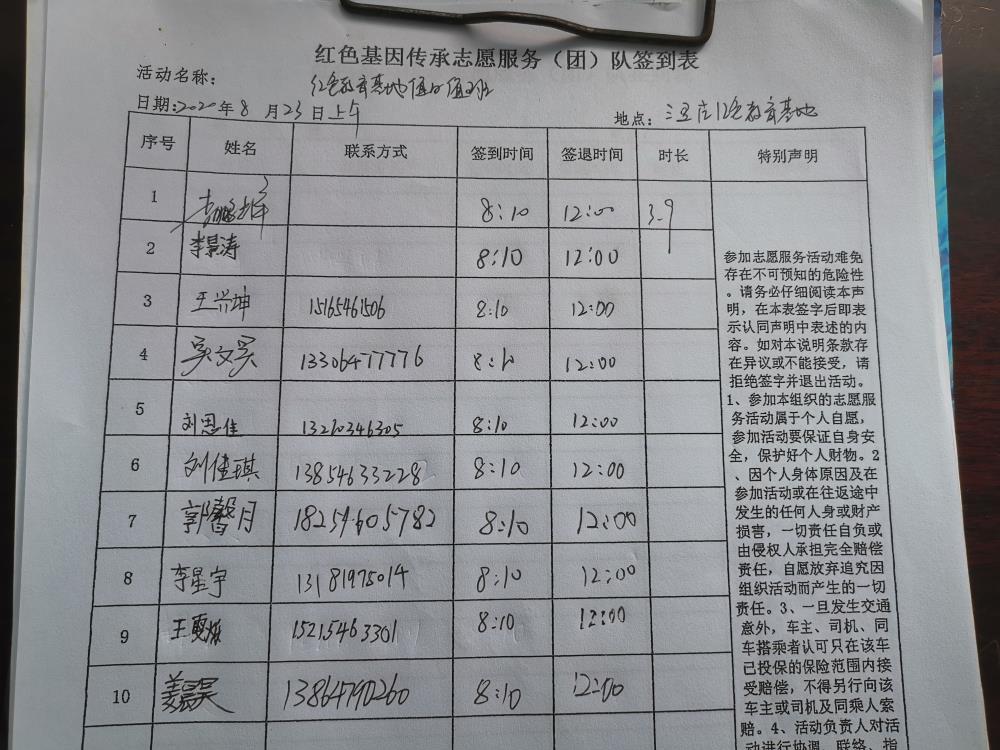 红色基因传承志愿服务（团）队签到表
活动名称： 红色教育基地值日值班
日期:2020年8月23日上午 地点： 三里庄红色教育基地
序号 姓名 联系方式 签到时间 签退时间 时长 特别声明
1 8:10 12:00 3.9
2 李景涛 8:10 12:00
3 王兴坤 15165461506 8:10 12:00
4 吴文昊 13306477776 8:10 12:00
5 刘思佳 13210346305 8:10 12:00
6 刘佳琪 13854633228 8:10 12:00
7 郭馨月 18254605782 8:10 12:00
8 李星宇 13181975014 8:10 12:00
9 王雯 15215463301 8:10 12:00
10 姜昊 13864790260 8:10 12:00
参加志愿服务活动难免
存在不可预知的危险性
。请务必仔细阅读本声
明，在本表签字后即表
示认同声明中表述的内
容。如对本说明条款存
在异议或不能接受，请
拒绝签字并退出活动。
1、参加本组织的志愿服
务活动属于个人自愿，
参加活动要保证自身安
全，保护好个人财物。2
、因个人身体原因及在
参加活动或在往返途中
发生的任何人身或财产
损害，一切责任自负或
由侵权人承担完全赔偿
责任，自愿放弃追究因
组织活动而产生的一切
责任。3、一旦发生交通
意外，车主、司机、同
车搭乘者认可只在该车
已投保的保险范围内接
受赔偿，不得另行向该
车主或司机及同乘人索
赔。4、活动负责人对活
动进行协调、联络、指